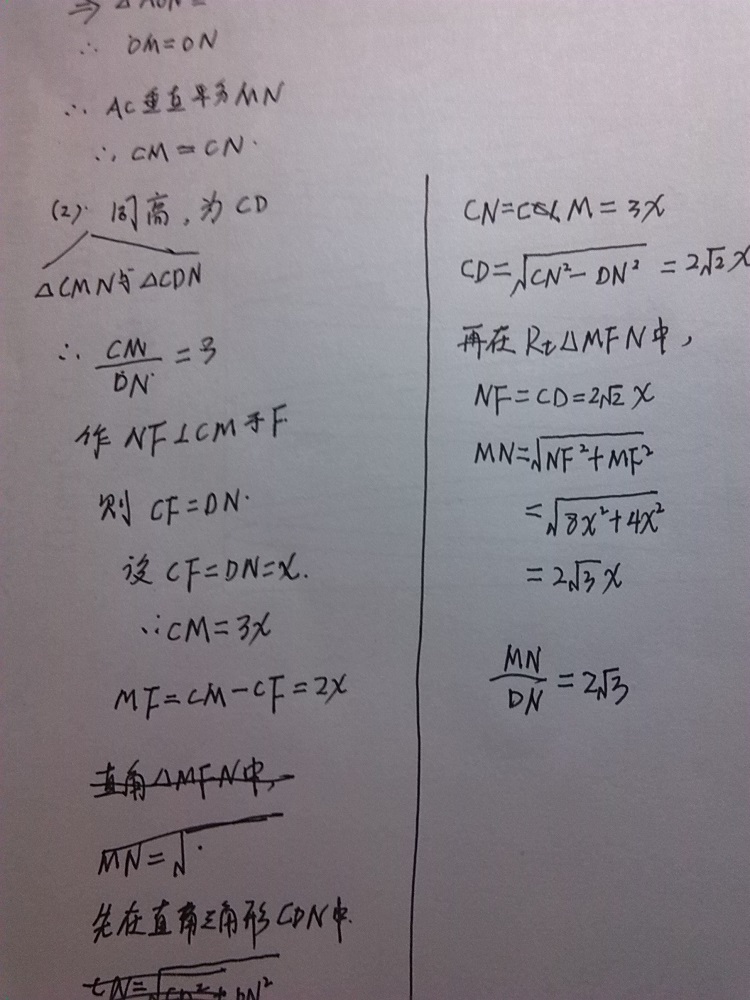 ⇒ △AON=
∴ OM=ON
∴ AC垂直平分MN
∴ CM=CN.
(2). 同高,为CD
△CMN与△CDN
∴ CM/DN=3
作NF⊥CM于F
则 CF=DN.
设 CF=DN=x.
∴CM=3x
MF=CM-CF=2x
直角△MFN中,
MN=√.
先在直角三角形CDN中
CN=√CD²+DN²
CN=CM=3x
CD=√CN²-DN²=2√2x
再在Rt△MFN中,
NF=CD=2√2x
MN=√NF²+MF²
=√8x²+4x²
=2√3x
MN/DN=2√3